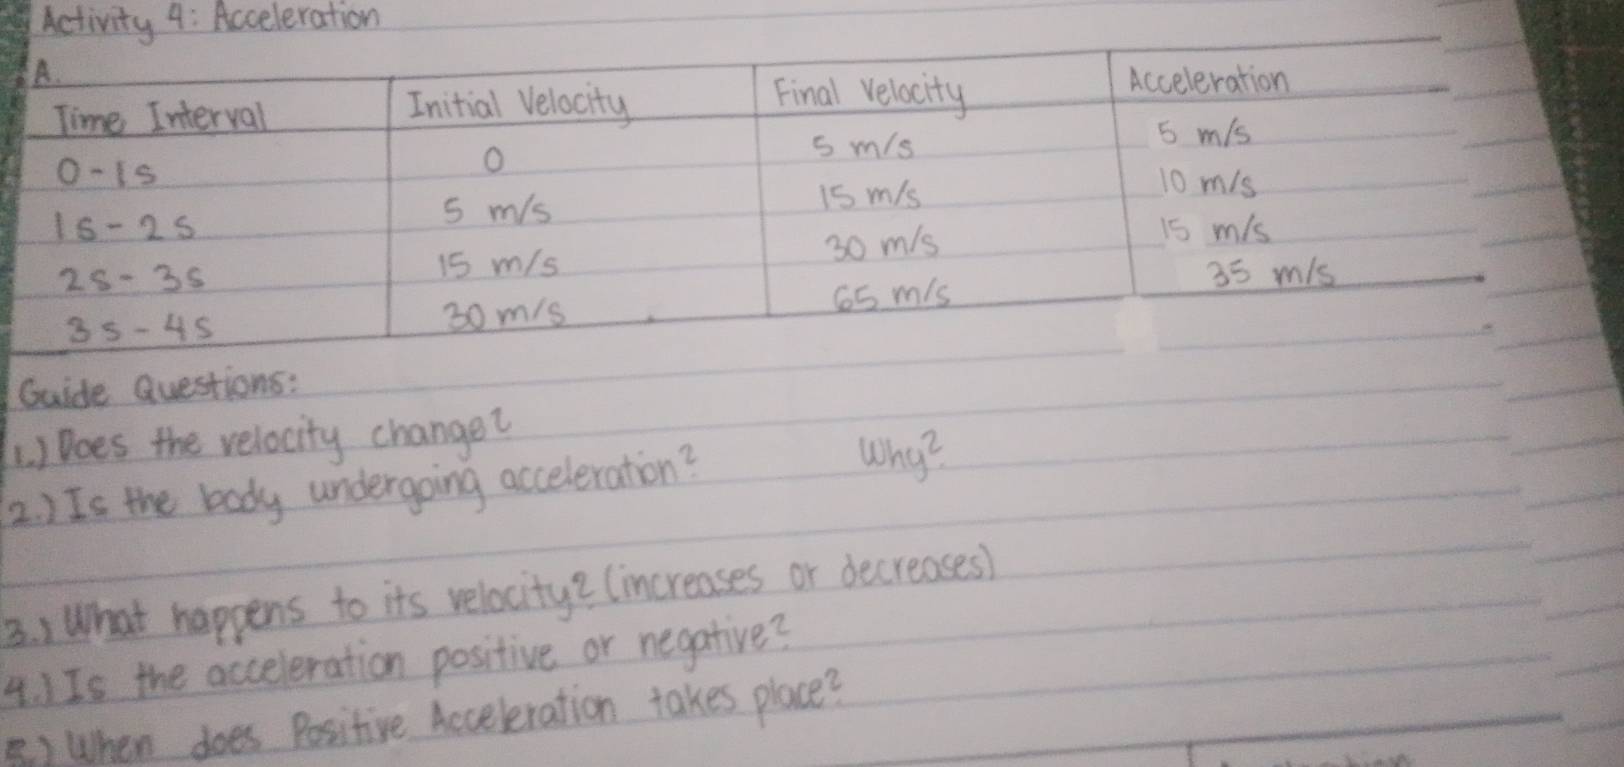 Activity 4: Acceleration
A.
Time Interval Initial Velocity Final Velocity Acceleration
0-1s 0 5 m/s 5 m/s
1s-2s 5 m/s 15 m/s 10 m/s
2s-3s 15 m/s 30 m/s 15 m/s
3s-4s 30 m/s 65 m/s 35 m/s
Guide Questions:
1.) Does the velocity change?
2.) Is the body undergoing acceleration? Why?
3.) What happens to its velocity? (increases or decreases)
4.) Is the acceleration positive or negative?
5.) When does Positive Acceleration takes place?